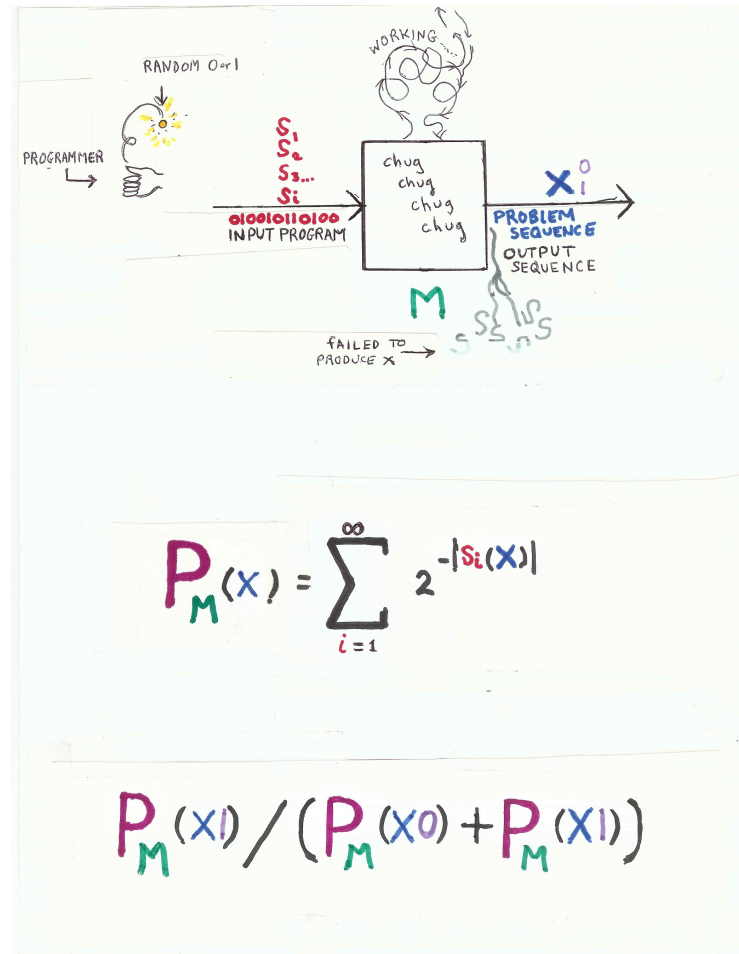 WORKING
RANDOM 0 or 1
PROGRAMMER
S1
S2
S3...
Si
010010110100
INPUT PROGRAM
chug
chug
chug
chug
X 0
1
PROBLEM
SEQUENCE
OUTPUT
SEQUENCE
M
S S S S S S S
FAILED TO
PRODUCE X
P_M(X) = ∑_{i=1}^{∞} 2^{-|Si(X)|}
P_M(X1)/(P_M(X0)+P_M(X1))